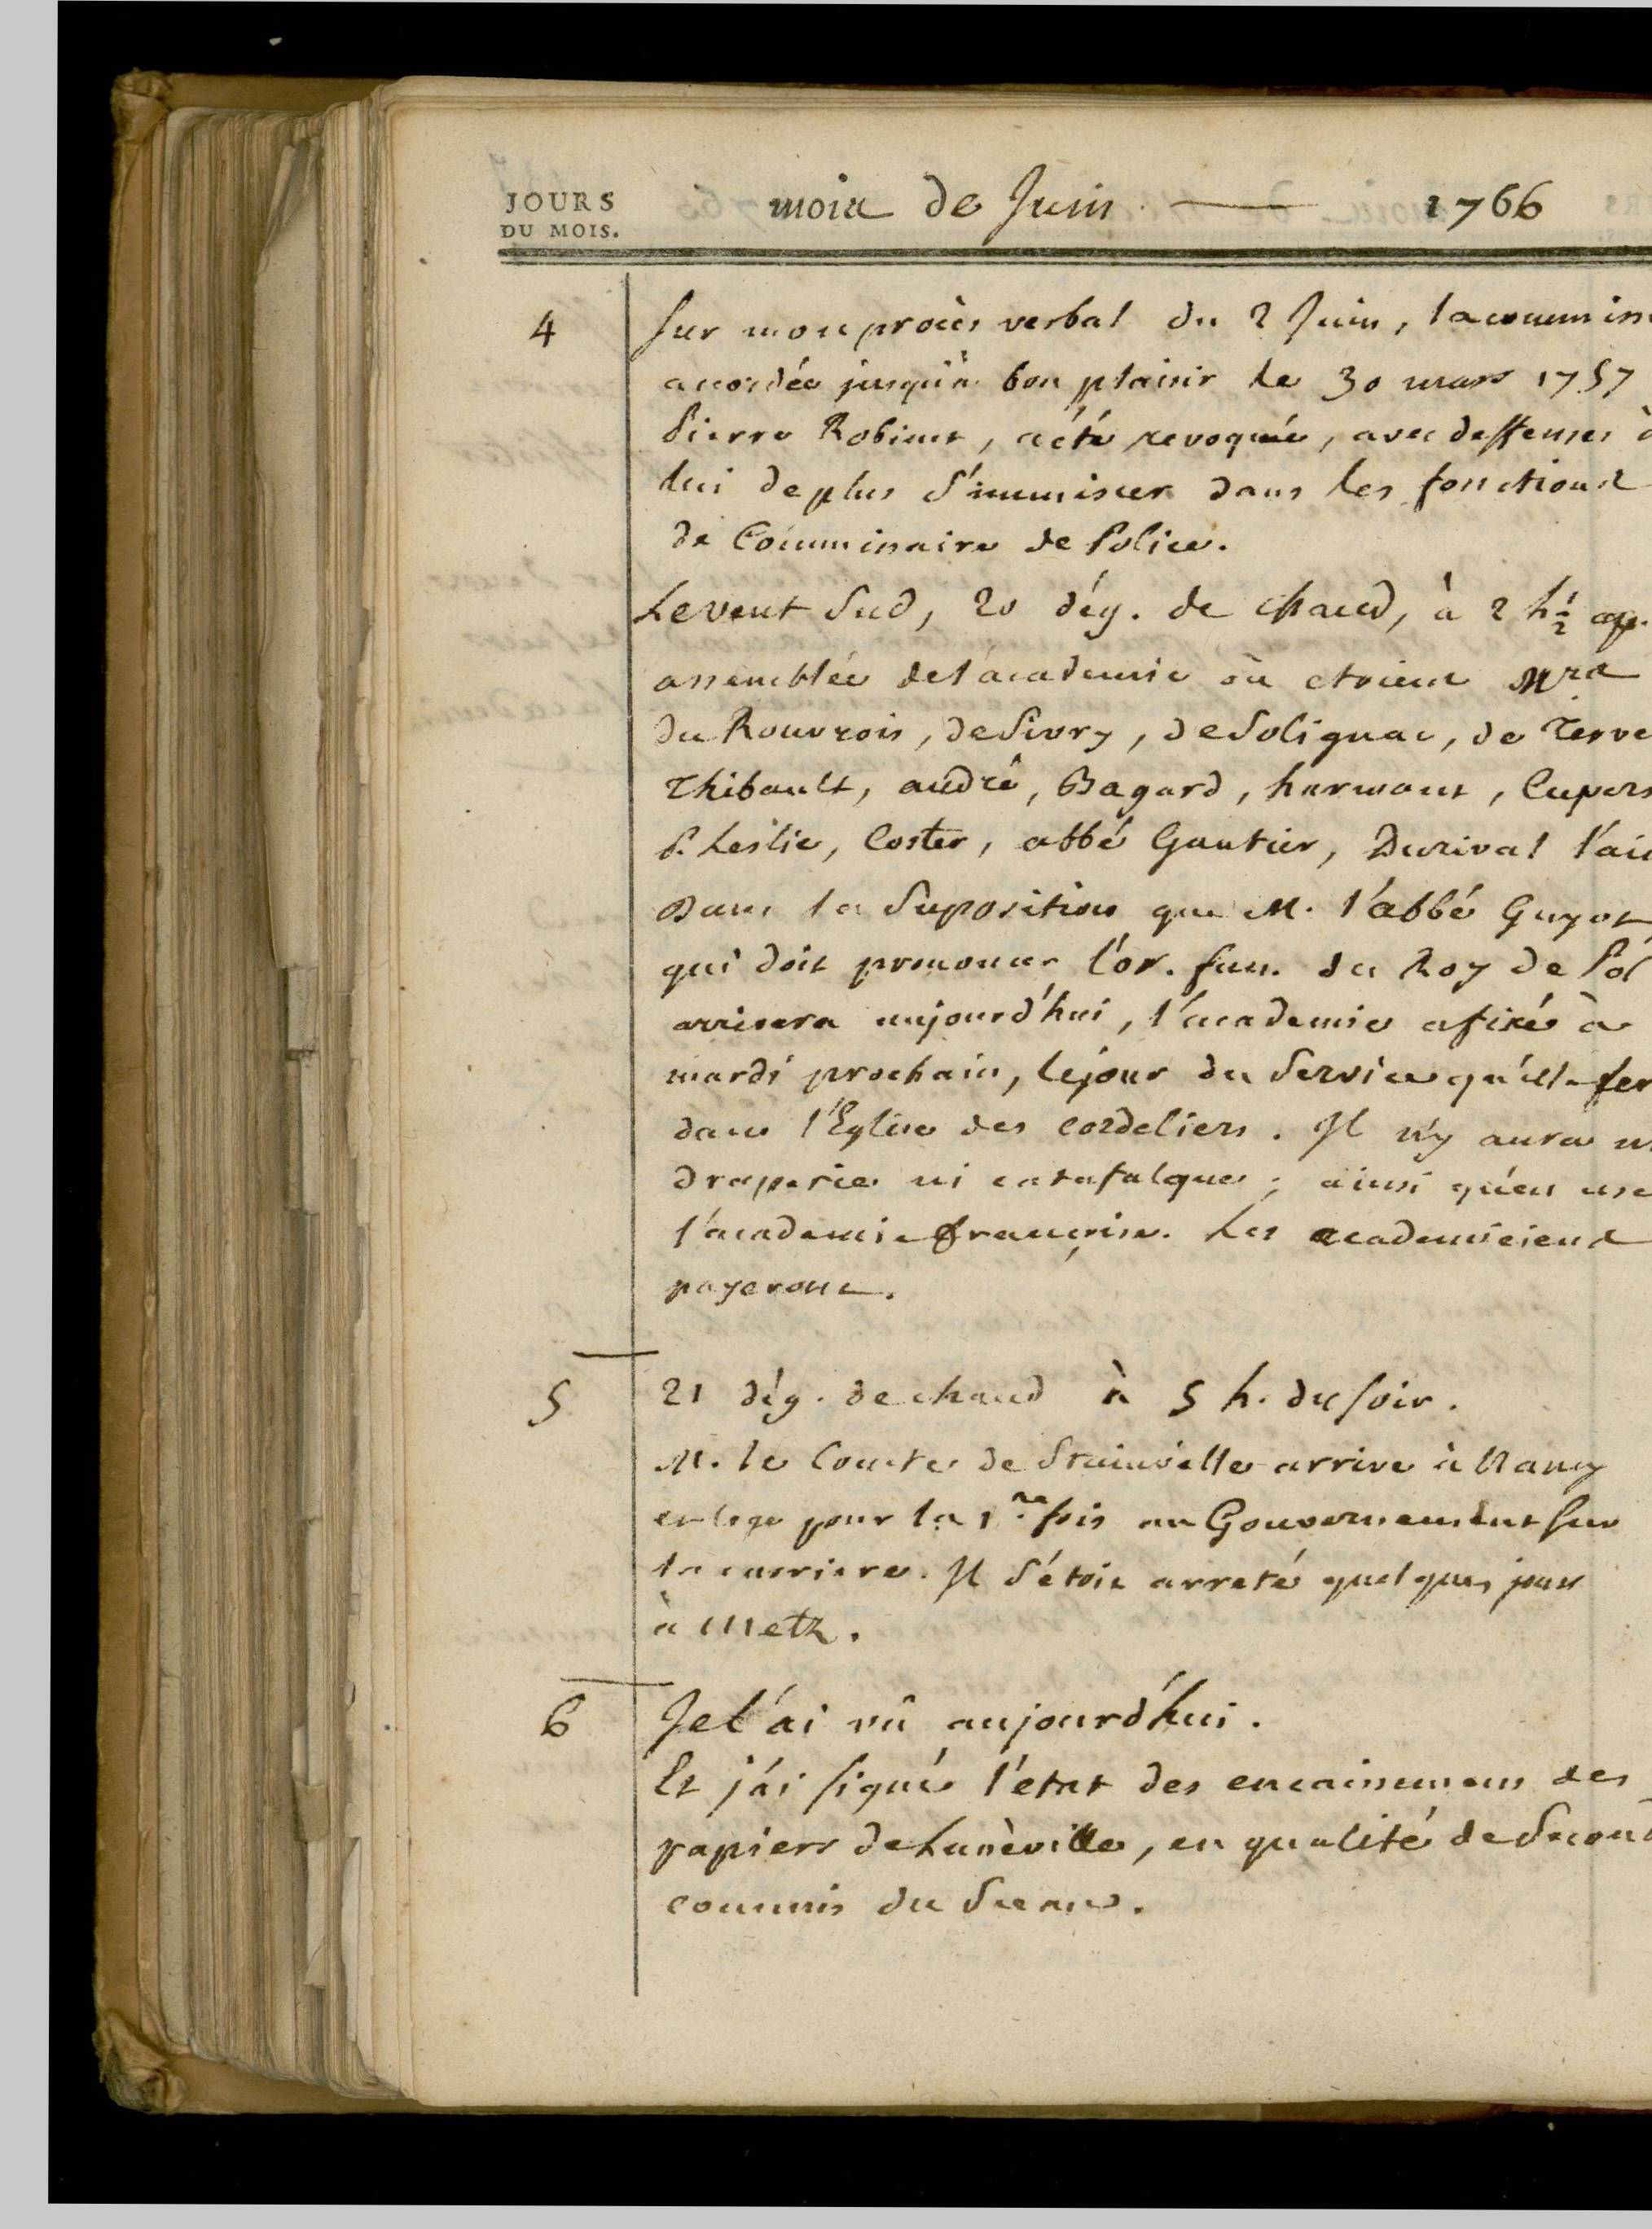 JOURS
DU MOIS.
mois de Juin — 1766
4
Sur mon procès verbal du 2 Juin, la commiss
accordée jusqu'à bon plaisir le 30 mars 1757
Pierre Robinet, a été revoquée, avec deffenses à
lui de plus s'immiscer dans les fonctions
de Commissaire de Police.
Le vent Sud, 20 dég. de chaud, à 2 h ½ ap.
assemblée de l'academie où etoient Mrs
du Rouvrois, de Sivry, de Solignac, de Terve
Thibault, andré, Bagard, harmant, Cupers
P. Leslie, Coster, abbé Gautier, Durival l'ai
Dans la Suposition que M. l'abbé Guyot
qui doit prononcer l'or. fun. du Roy de Pol
arrivera aujourd'hui, l'academie a fixé à
mardi prochain, le jour du Service qu'elle fer
dans l'Eglise des cordeliers. Il n'y aura n
draperie ni catafalque; ainsi qu'en use
l'academie françoise. Les academiciens
payeront.
5
21 dég. de chaud à 5 h. du soir.
M. le Comte de Stainville arrive à Nancy
et loge pour la 1.re fois au Gouvernement sur
la carriere. Il s'étoit arreté quelques jours
à Metz.
6
Je l'ai vû aujourd'hui.
Et j'ai signé l'etat des encaissemens des
papiers de Lunéville, en qualité de Second
commis du Sceau.